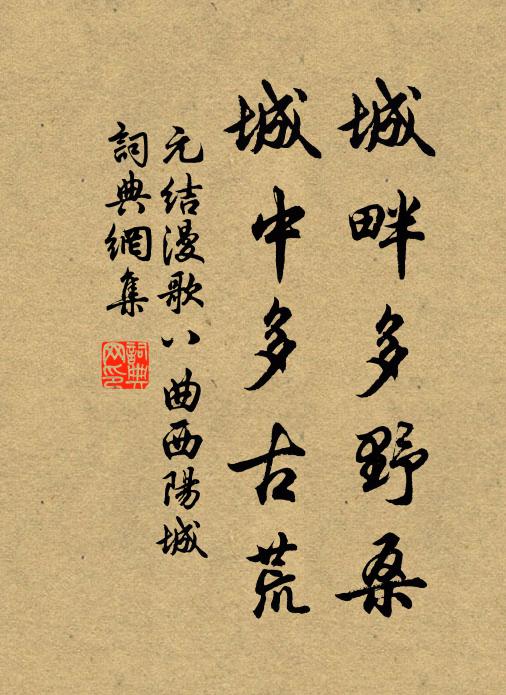 城畔多野桑
城中多古荒
元结漫歌八曲西陽城
詞典網集
詞典网印